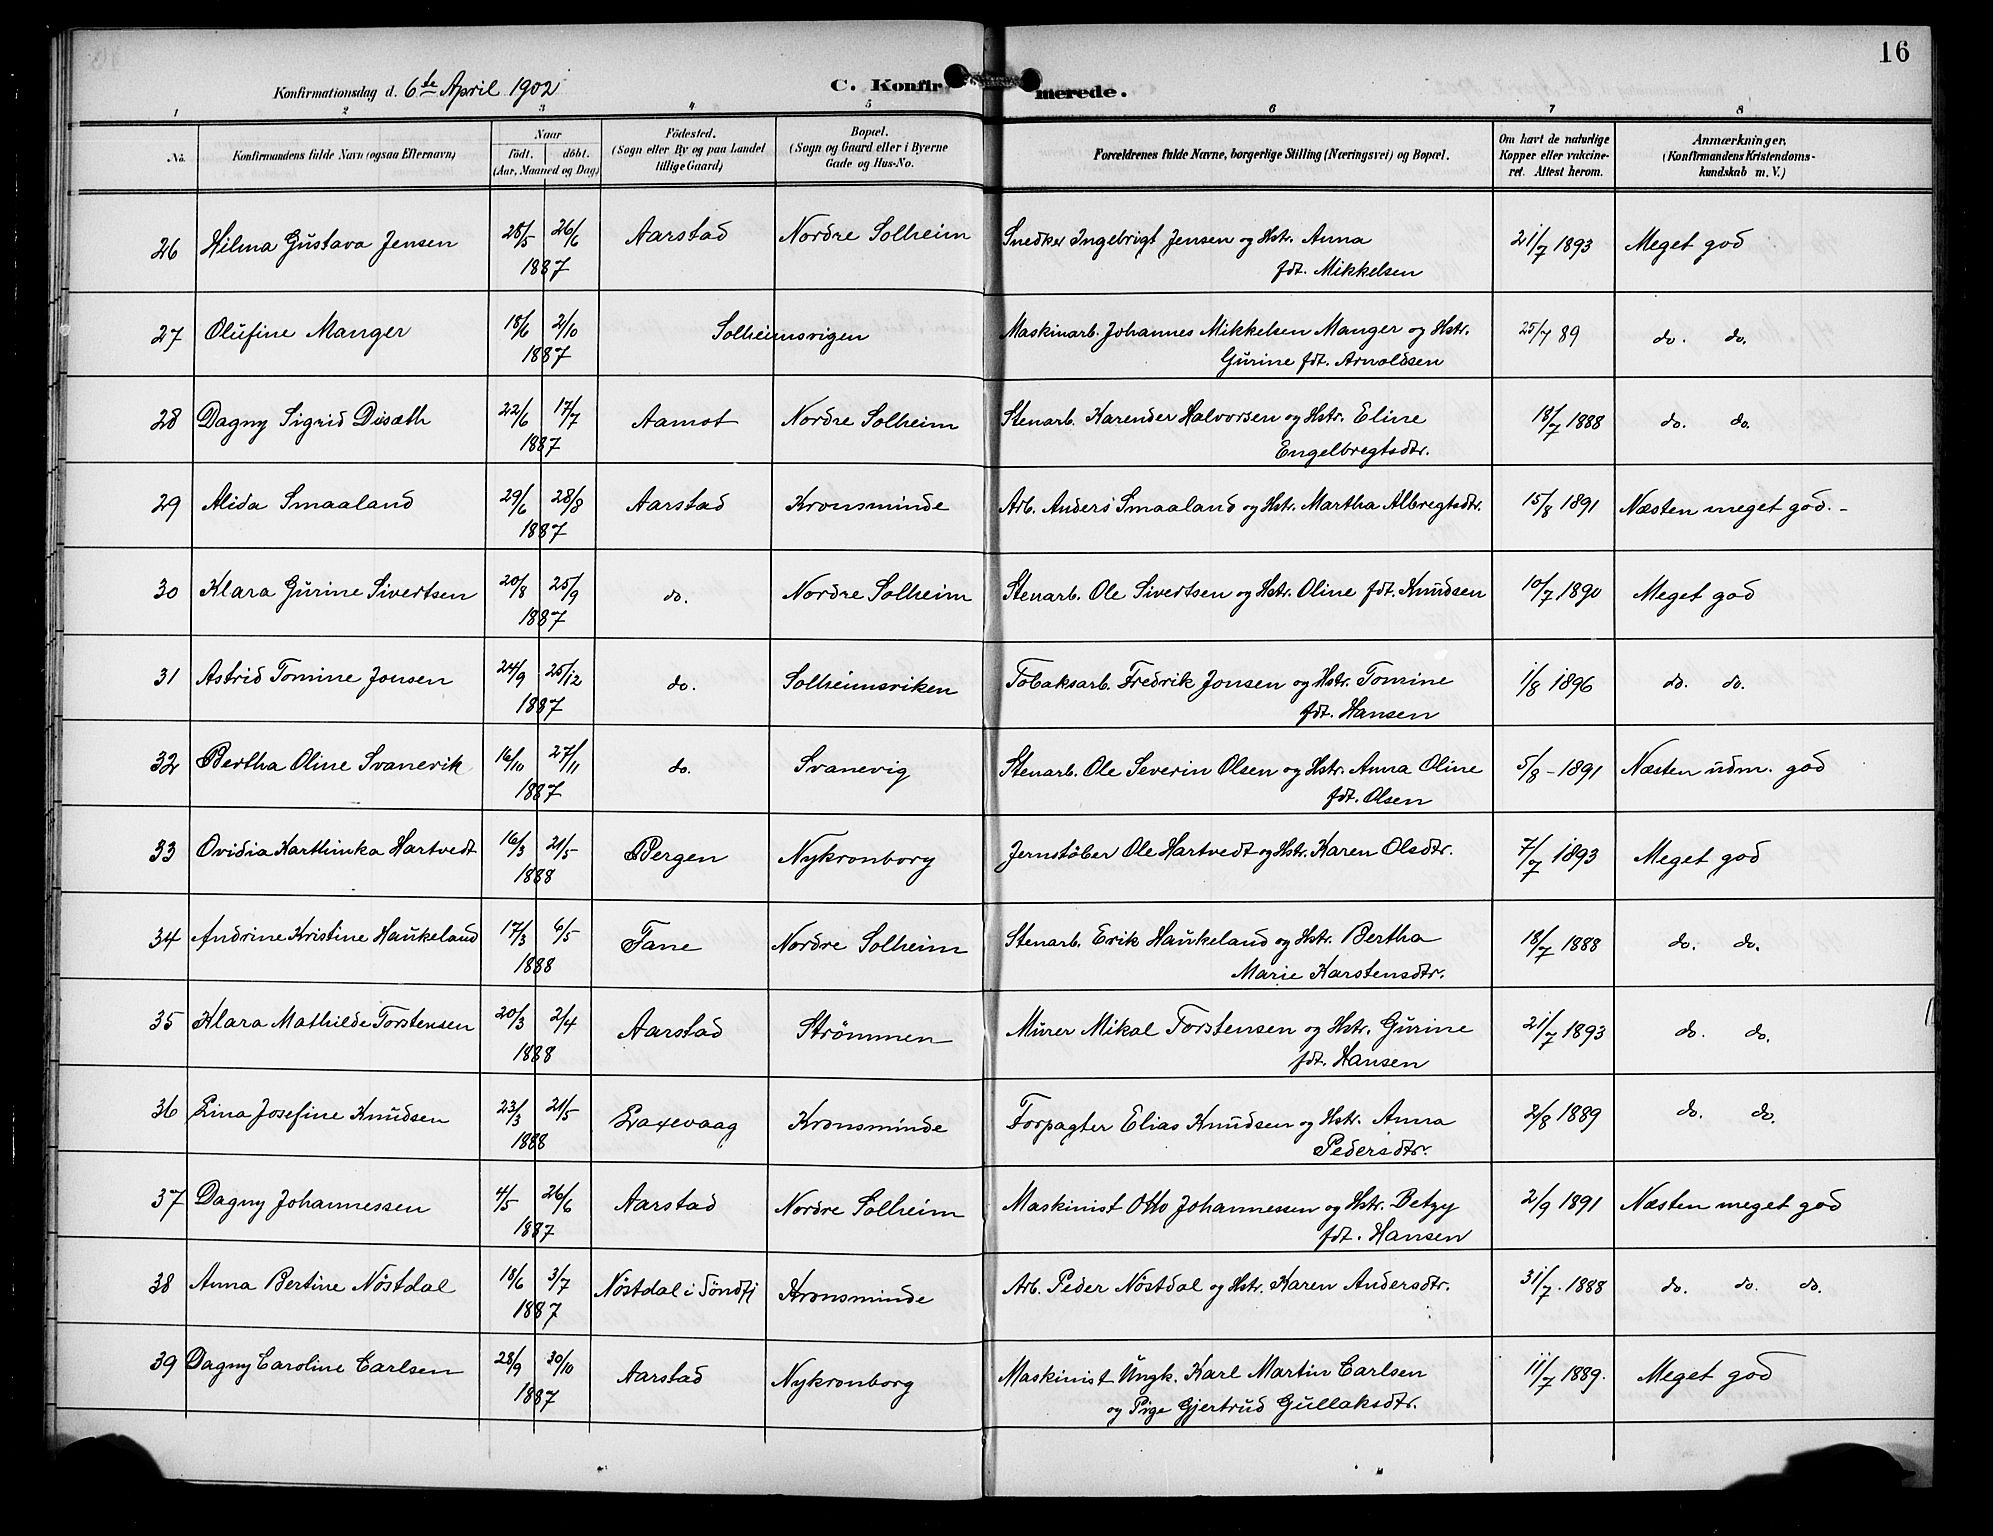 16
Konfirmationsdag d. 6te April 1902
C. Konfirmerede.
1 2 3 4 5 6 7 8
No. Konfirmandens fulde Navn (ogsaa Efternavn) Naar födt. döbt. (Aar, Maaned og Dag) Födested. (Sogn eller By og paa Landet tillige Gaard) Bopæl. (Sogn og Gaard eller i Byerne Gade og Hus-No. Forældrenes fulde Navne, borgerlige Stilling (Næringsvei) og Bopæl. Om havt de naturlige Kopper eller vakcineret. Attest herom. Anmærkninger. (Konfirmandens Kristendomskundskab m. V.)
26 Hilma Gustava Jensen 28/5 26/6 Aarstad Nordre Solheim Snedker Ingebrigt Jensen og Hstr. Anna 21/7 1893 Meget god
1887 fdt. Mikkelsen
27 Olufine Manger 18/6 2/10 Solheimsvigen Maskinarb. Johannes Mikkelsen Manger og Hstr. 25/7 89 do. do.
1887 Gurine fdt. Arnoldsen
28 Dagny Sigrid Disæth 22/6 17/7 Aamot Nordre Solheim Stenarb. Karender Halvorsen og Hstr. Eline 18/7 1888 do. do.
1887 Engelbregtsdtr.
29 Alida Smaaland 29/6 28/8 Aarstad Kronsminde Arb. Anders Smaaland og Hstr. Martha Albregtsdtr. 15/8 1891 Næsten meget god. -
1887
30 Klara Gurine Sivertsen 20/8 25/9 do. Nordre Solheim Stenarb. Ole Sivertsen og Hstr. Oline fdt. Knudsen 10/7 1890 Meget god
1887
31 Astrid Tomine Jonsen 24/9 25/12 do. Solheimsviken Tobaksarb. Fredrik Jonsen og Hstr. Tomine 1/8 1896 do. do.
1887 fdt. Hansen
32 Bertha Oline Svanevik 16/10 27/11 do. Svanevig Stenarb. Ole Severin Olsen og Hstr. Anna Oline 5/8 - 1891 Næsten udm. god
1887 fdt. Olsen
33 Ovidia Karthinka Hartvedt 16/3 21/5 Bergen Nykronborg Jernstøber Ole Hartvedt og Hstr. Karen Olsdtr. 7/7 1893 Meget god
1888
34 Andrine Kristine Haukeland 17/3 6/5 Fane Nordre Solheim Stenarb. Erik Haukeland og Hstr. Bertha 18/7 1888 do. do.
1888 Marie Karstensdtr.
35 Klara Mathilde Torstensen 20/3 2/4 Aarstad Strömmen Murer Mikal Torstensen og Hstr. Gurine 21/7 1893 do. do.
1888 fdt. Hansen
36 Lina Josefine Knudsen 23/3 21/5 Laxevaag Kronsminde Forpagter Elias Knudsen og Hstr. Anna 2/8 1889 do. do.
1888 Pedersdtr.
37 Dagny Johannessen 4/5 26/6 Aarstad Nordre Solheim Maskinist Otto Johannessen og Hstr. Betzy 2/9 1891 Næsten meget god
1887 fdt. Hansen
38 Anna Bertine Nöstdal 18/6 3/7 Nöstdal i Söndfj Kronsminde Arb. Peder Nöstdal og Hstr. Karen Andersdtr. 31/7. 1888 do. do. do.
1887
39 Dagny Caroline Carlsen 28/9 30/10 Aarstad Nykronborg Maskinist Ungk. Karl Martin Carlsen 11/7 1889. Meget god
1887 og Pige Gjertrud Gullaksdtr.